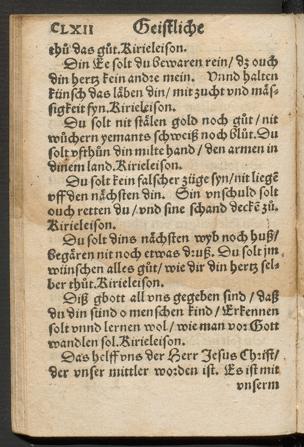 CLXII Geistliche
thů das gůt. Kirieleison.
Din Ee solt du bewaren rein / dz ouch
din hertz kein andre mein. Vnnd halten
künsch das läben din / mit zucht vnd mäs-
sigkeit syn. Kirieleison.
Du solt nit stälen gold noch gůt / nit
wůchern yemants schweiß noch blůt. Du
solt vfthůn din milte hand / den armen in
dinem land. Kirieleison.
Du solt kein falscher züge syn / nit liegē
vff den nächsten din. Sin vnschuld solt
ouch retten du / vnd sine schand deckē zů.
Kirieleison.
Du solt dins nächsten wyb noch huß /
begären nit noch etwas druß. Du solt jm
wünschen alles gůt / wie dir din hertz sel-
ber thůt. Kirieleison.
Diß gbott all vns gegeben sind / daß
du din sünd o menschen kind / Erkennen
solt vnnd lernen wol / wie man vor Gott
wandlen sol. Kirieleison.
Das helff vns der Herr Jesus Christ /
der vnser mittler worden ist. Es ist mit
vnserm